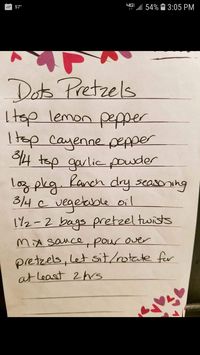 97°
4G 54% 3:05 PM
Dots Pretzels
1 tsp lemon pepper
1 tsp cayenne pepper
3/4 tsp garlic powder
1oz pkg. Ranch dry seasoning
3/4 c vegetable oil
1½-2 bags pretzel twists
Mix sauce, pour over
pretzels, let sit/rotate for
at least 2 hrs